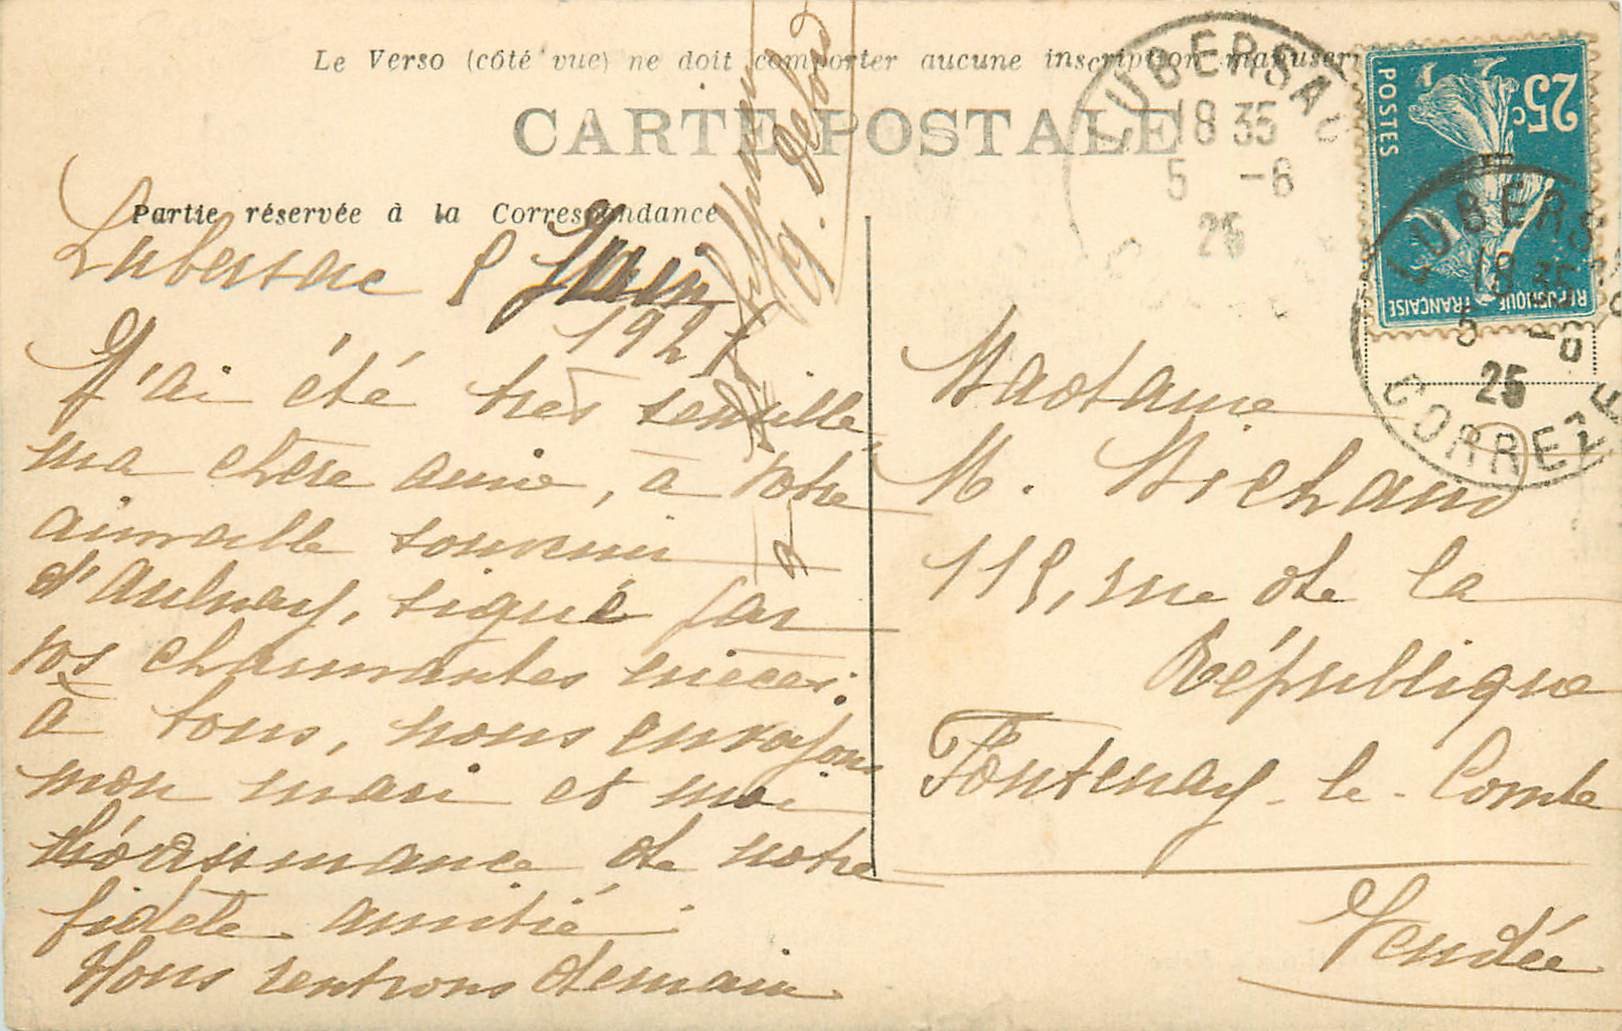 Le Verso (côté vue) ne doit comporter aucune inscription manuscri
CARTE POSTALE
Partie réservée à la Correspondance
Lubersac 5 Juin
1925
J'ai été très sensible,
ma chère amie, à votre
aimable souvenir
d'Aulnay, signé par
vos charmantes nièces.
à tous, nous envoyons
mon mari et moi
l'assurance de notre
fidèle amitié.
Nous rentrons demain
à
G. Delord
Madame
M. Michaud
115, rue de la
République
Fontenay-le-Comte
Vendée
LUBERSAC
18 35
5 -6
25
25c
POSTES
REPUBLIQUE FRANÇAISE
LUBERSAC
18 35
5 -6
25
CORREZE